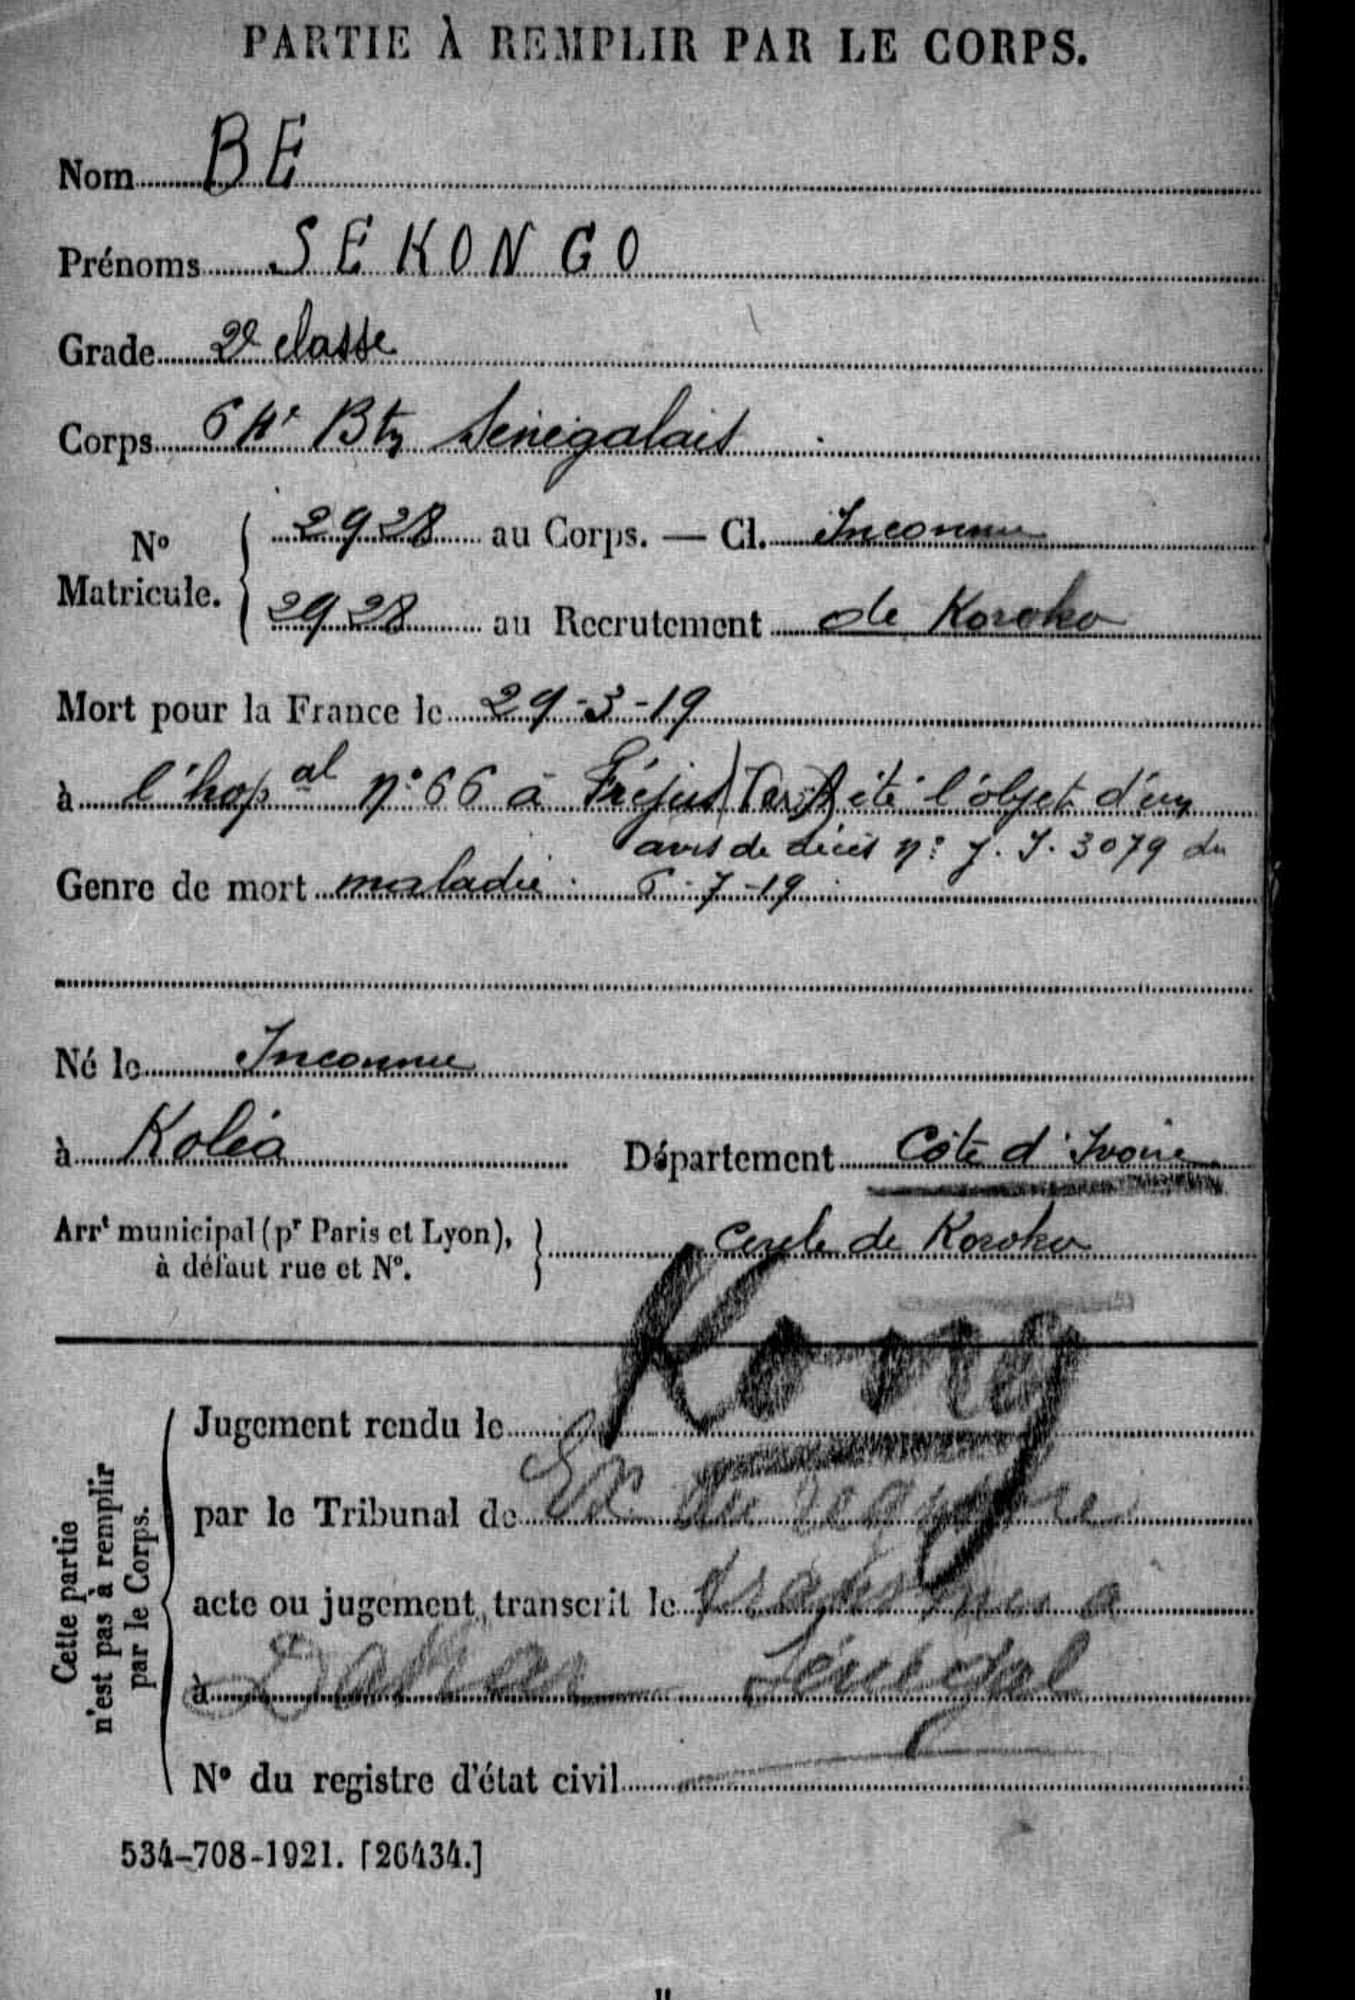 PARTIE À REMPLIR PAR LE CORPS.
Nom BE
Prénoms SEKONGO
Grade 2e classe
Corps Btn Sénégalais
No Matricule. { 2928 au Corps. — Cl. Inconnu
2928 au Recrutement de Koroko
Mort pour la France le 29-3-19
à l'hopal no 66 à Fréjus (Var) A été l'objet d'un
avis de décès no J. J. 3079 du
Genre de mort maladie. 6-7-19
Né le Inconnu
à Koléa Département Côte d'Ivoire
Arrt municipal (pr Paris et Lyon), à défaut rue et No. } Cercle de Koroko
Kong
Cette partie n'est pas à remplir par le Corps.
Jugement rendu le
par le Tribunal de du
acte ou jugement, transcrit le transmis a
à Dakar Sénégal
No du registre d'état civil
534-708-1921. [26434.]